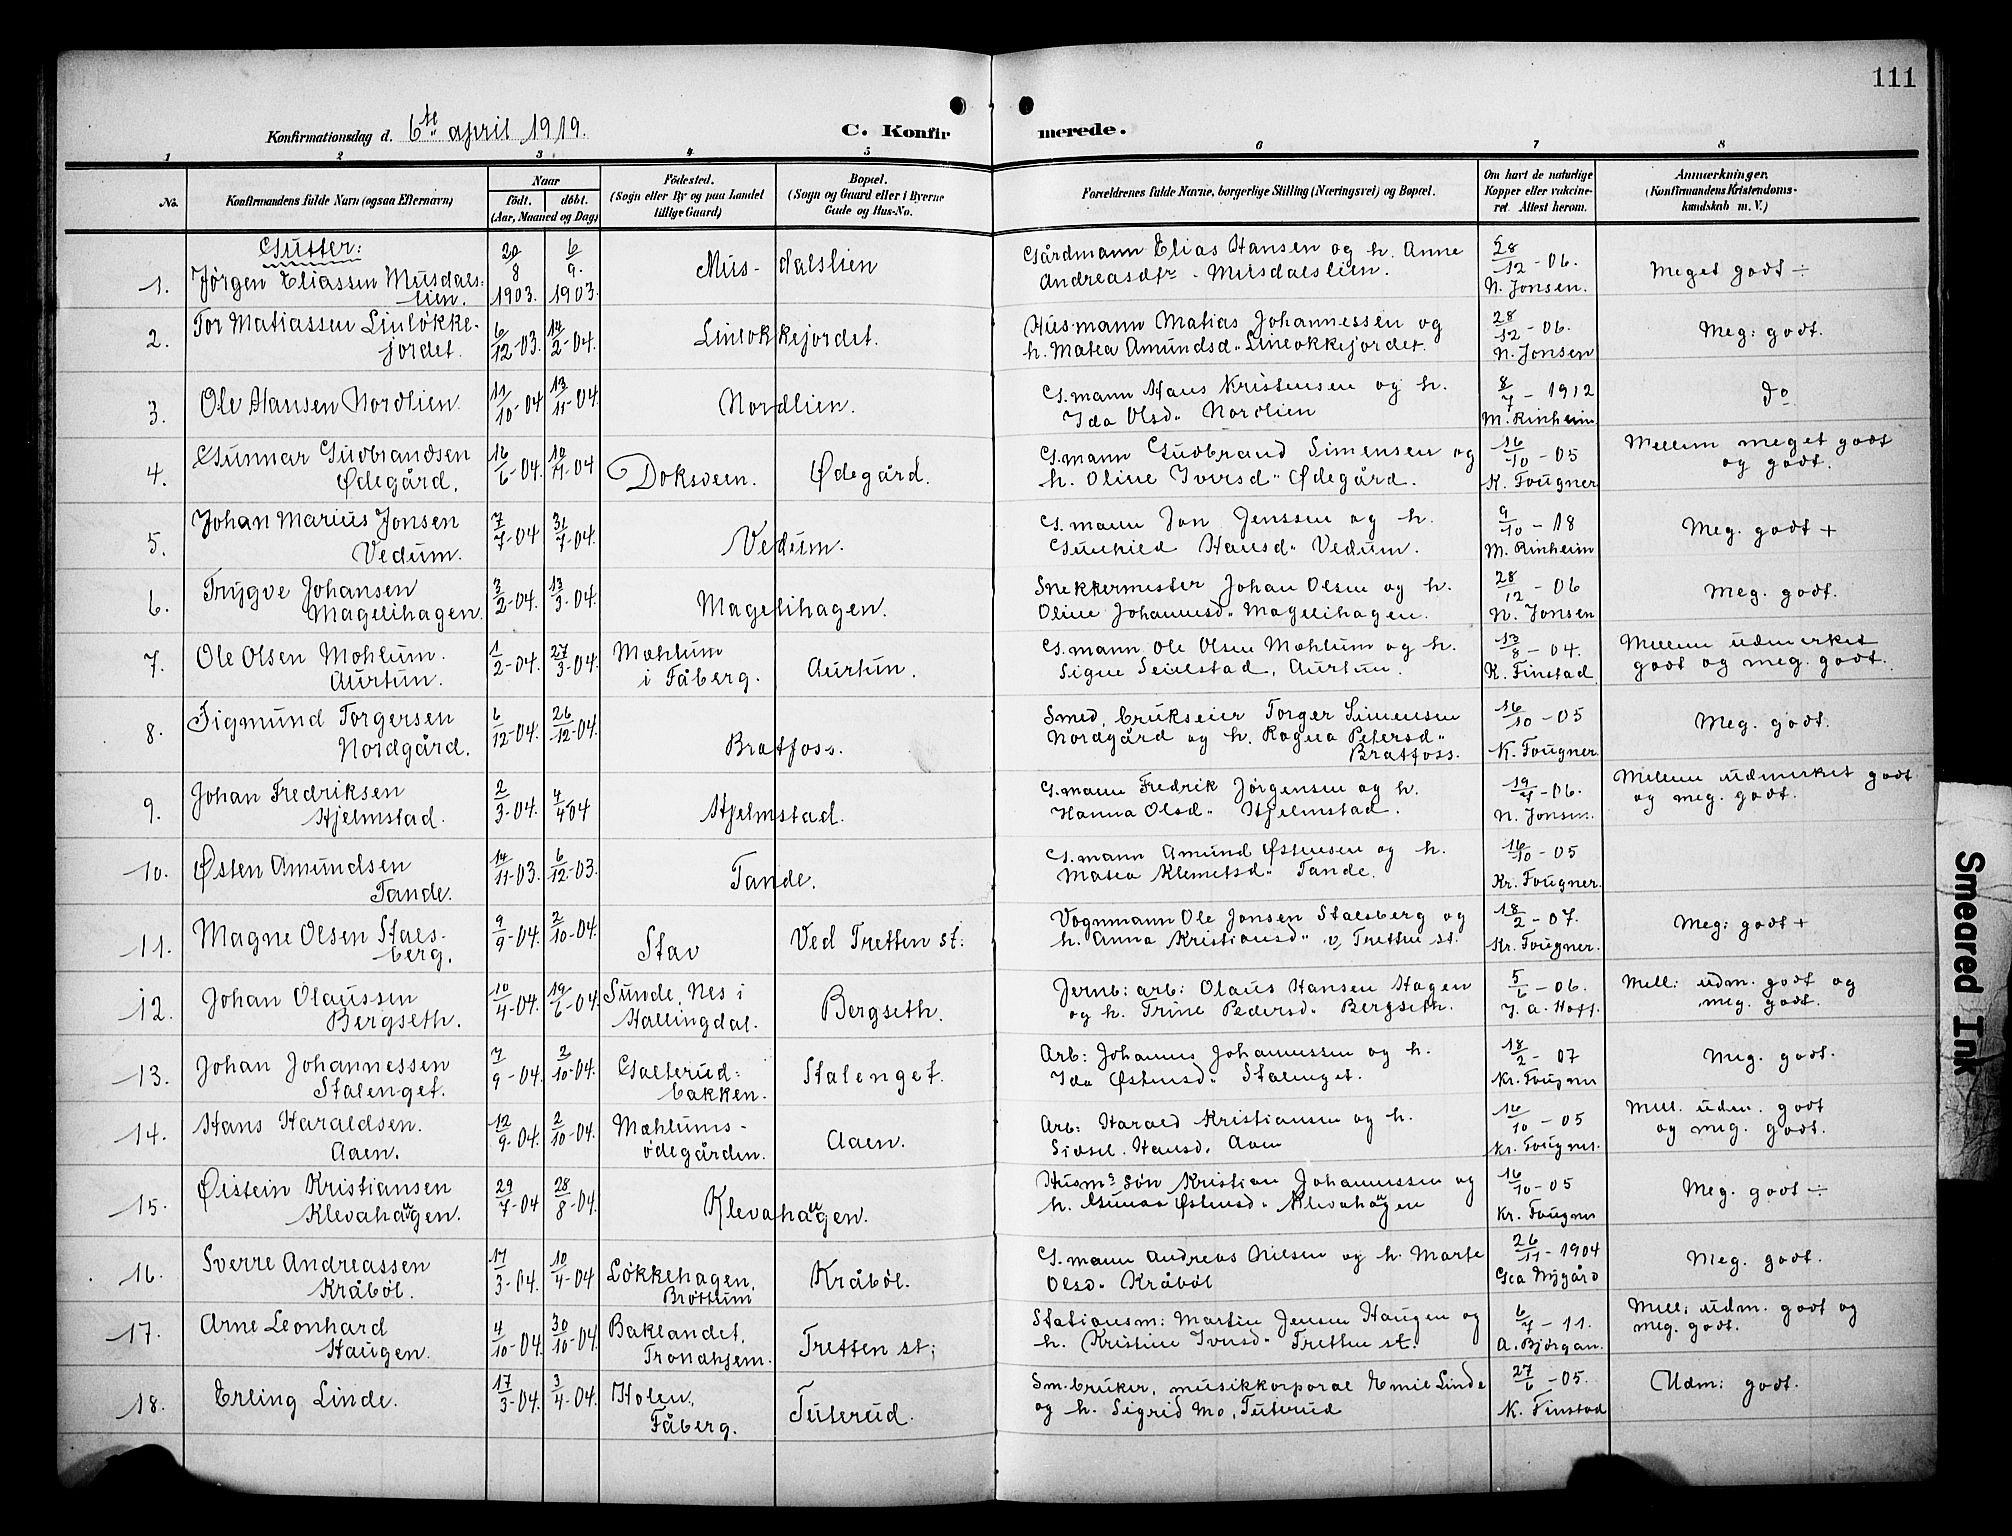 111
Konfirmationsdag d. 6te april 1919.
C. Konfirmerede.
1 2 3 4 5 6 7 8
No.
Konfirmandens fulde Navn (ogsaa Efternavn)
Naar
født. døbt.
(Aar, Maaned og Dag)
Fødested.
(Sogn eller By og paa Landet
tillige Gaard)
Bopæl.
(Sogn og Gaard eller i Byerne
Gade og Hus-No.
Forældrenes fulde Navne, borgerlige Stilling (Næringsvei) og Bopæl.
Om havt de naturlige
Kopper eller vakcine-
ret. Attest herom.
Anmærkninger.
(Konfirmandens Kristendoms-
kundskab m. V.)
Gutter:
1. Jørgen Eliassen Musdals-
lien. 20/8 1903. 6/9. 1903. Musdalslien
Gårdmann Elias Hansen og h. Anne
Andreasdtr - Musdalslien.
28/12-06.
N. Jonsen.
Meget godt ÷
2. Tor Matiassen Linløkke-
jordet. 6/12-03. 14/2-04. Linløkkejordet.
Husmann Matias Johannessen og
h. Matea Amundsd" Linløkkejordet.
28/12-06.
N. Jonsen
Meg: godt.
3. Ole Hansen Nordlien. 11/10-04 13/11-04. Nordlien.
G.mann Hans Kristensen og h.
Ida Olsd" Nordlien
8/7-1912
M. Rinheim
do
4. Gunnar Gudbrandsen
Ødegård. 16/6-04. 10/7-04 Doksveen. Ødegård.
G.mann Gudbrand Simensen og
h. Oline Iversd" Ødegård.
16/10-05
K. Fougner
Mellem meget godt
og godt.
5. Johan Marius Jonsen
Vedum. 7/7-04 31/7-04. Vedum.
G.mann Jon Jenssen og h.
Gunhild Hansd" Vedum.
9/10-18
M. Rinheim
Meg. godt +
6. Trygve Johansen
Magelihagen. 3/2-04. 13/3-04. Magelihagen.
Snekkermester Johan Olsen og h.
Oline Johannesd" Magelihagen.
28/12-06
N. Jonsen
Meg. godt.
7. Ole Olsen Mæhlum.
Aurtun. 1/2-04. 27/3-04. Mæhlum
i Fåberg. Aurtun.
G.mann Ole Olsen Mæhlum og h.
Signe Seielstad, Aurtun.
13/8-04.
K. Finstad
Mellem udmerket
godt og meg. godt.
8. Sigmund Torgersen
Nordgård. 6/12-04. 26/12-04. Bratfoss.
Smed, brukseier Torger Simensen
Nordgård og h. Ragna Petersd"
Bratfoss.
16/10-05
K. Fougner.
Meg. godt.
9. Johan Fredriksen
Hjelmstad. 2/3-04. 4/4-04 Hjelmstad.
G.mann Fredrik Jørgensen og h.
Hanna Olsd" Hjelmstad.
-06.
N. Jonsen.
Mellem udmerket godt
og meg. godt.
10. Østen Amundsen
Tande. 14/11-03. 6/12-03. Tande.
G.mann Amund Østensen og h.
Matea Klemetsd" Tande.
16/10-05
Kr. Fougner.
11. Magne Olsen Stals-
berg. 9/9-04. 2/10-04. Stav Ved Tretten st:
Vognmann Ole Jonsen Stalsberg og
h. Anna Kristiansd" v, Tretten st.
18/2-07.
Kr. Fougner.
Meg: godt +
12. Johan Olaussen
Bergseth. 10/4-04. 19/6-04. Sunde, Nes i
Hallingdal. Bergseth.
Jernb: arb: Olaus Hansen Hagen
og h. Trine Pedersd" Bergseth.
5/6-06.
J. A. Hoff.
Mell: udm. godt og
meg. godt.
13. Johan Johannessen
Stalenget. 7/9-04. 2/10-04. Galterud-
bakken. Stalenget.
Arb: Johannes Johannessen og h.
Ida Østensd" Stalenget.
18/2-07
Kr. Fougner
Meg. godt.
14. Hans Haraldsen.
Aaen. 12/9-04. 2/10-04. Mæhlums-
ødegården. Aaen.
Arb: Harald Kristiansen og h.
Sidsel. Hansd. Aaen
16/10-05
Kr. Fougner.
Mell. udm. godt
og meg. godt.
15. Øistein Kristiansen
Klevahaugen. 29/7-04 28/8-04. Klevahaugen.
Husm.s søn Kristian Johannessen og
h. Østensd. Klevahaugen
16/10-05
Kr. Fougner
Meg. godt ÷
16. Sverre Andreassen
Kråbøl. 17/3-04. 10/4-04 Løkkehagen,
Brøttum Kråbøl.
G.mann Andreas Nilsen og h. Marte
Olsd. Kråbøl
26/11-1904
Gea Nygård
Meg. godt.
17. Arne Leonhard
Haugen. 4/10-04. 30/10-04. Baklandet,
Trondhjem. Tretten st:
Stationsm: Martin Jensen Haugen og
h. Kristine Iversd" Tretten st.
6/7-11.
A. Bjørgan.
Mell: udm. godt og
meg. godt.
18. Erling Linde. 17/3-04. 3/4-04. Holen,
Fåberg. Tuterud.
Sm.bruker, musikkorporal Emil Linde
og h. Sigrid Mo, Tuterud
27/6-05.
K. Finstad
Udm: godt.
Smeared Ink